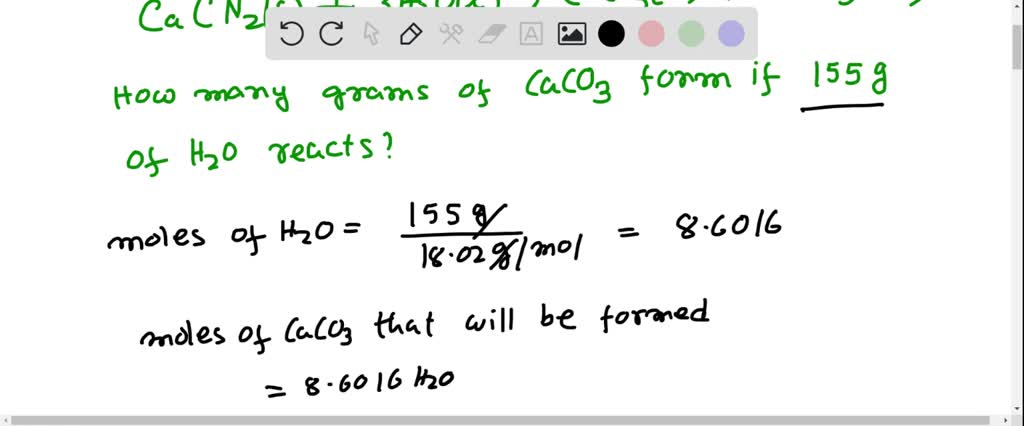 Ca(CN2)
How many grams of CaCO3 form if 155g
of H2O reacts?
moles of H2O = 155 g / 18.02 g/mol = 8.6016
moles of CaCO3 that will be formed
= 8.6016 H2O